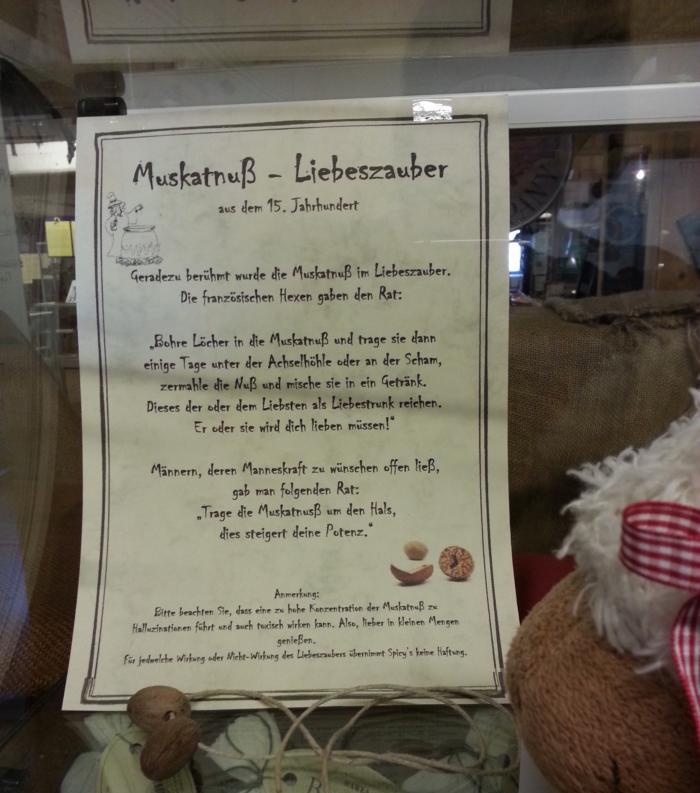 Muskatnuß - Liebeszauber
aus dem 15. Jahrhundert
Geradezu berühmt wurde die Muskatnuß im Liebeszauber.
Die französischen Hexen gaben den Rat:
„Bohre Löcher in die Muskatnuß und trage sie dann
einige Tage unter der Achselhöhle oder an der Scham,
zermahle die Nuß und mische sie in ein Getränk.
Dieses der oder dem Liebsten als Liebestrunk reichen.
Er oder sie wird dich lieben müssen!"
Männern, deren Manneskraft zu wünschen offen ließ,
gab man folgenden Rat:
„Trage die Muskatnusß um den Hals,
dies steigert deine Potenz."
Anmerkung:
Bitte beachten Sie, dass eine zu hohe Konzentration der Muskatnuß zu
Halluzinationen führt und auch toxisch wirken kann. Also, lieber in kleinen Mengen
genießen.
Für jedwelche Wirkung oder Nicht-Wirkung des Liebeszaubers übernimmt Spicy's keine Haftung.